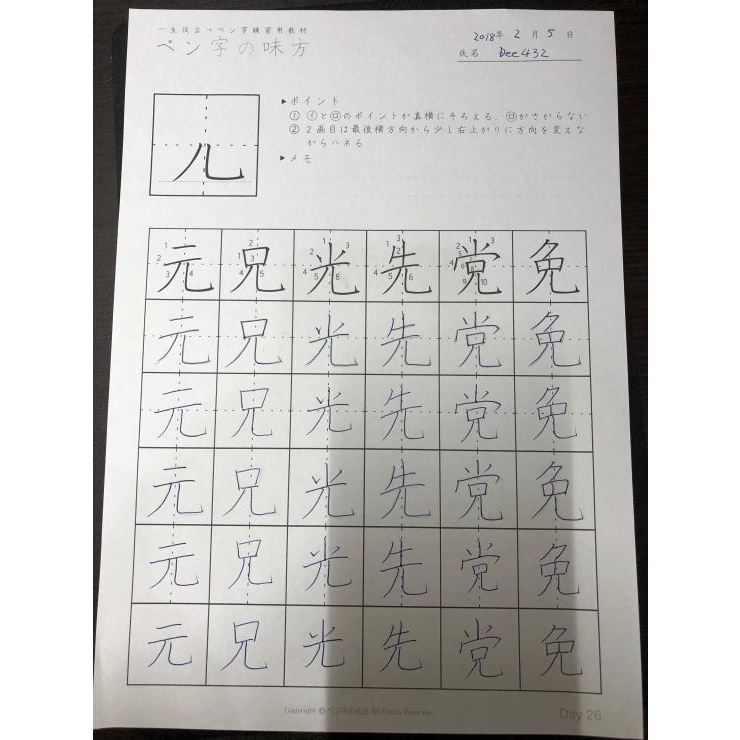 一生役立つペン字練習用教材
ペン字の味方
2018年 2月 5日
氏名 Dee432
儿
▶ポイント
① ㋑と㋺のポイントが真横にそろえる、㋺がさがらない
② 2画目は最後横方向から少し右上がりに方向を変えな
がらハネる
▶メモ
元 兄 光 先 党 免
元 兄 光 先 党 免
元 兄 光 先 党 免
元 兄 光 先 党 免
元 兄 光 先 党 免
元 兄 光 先 党 免
Copyright © ペン字の味方 All Rights Reserved.
Day 26